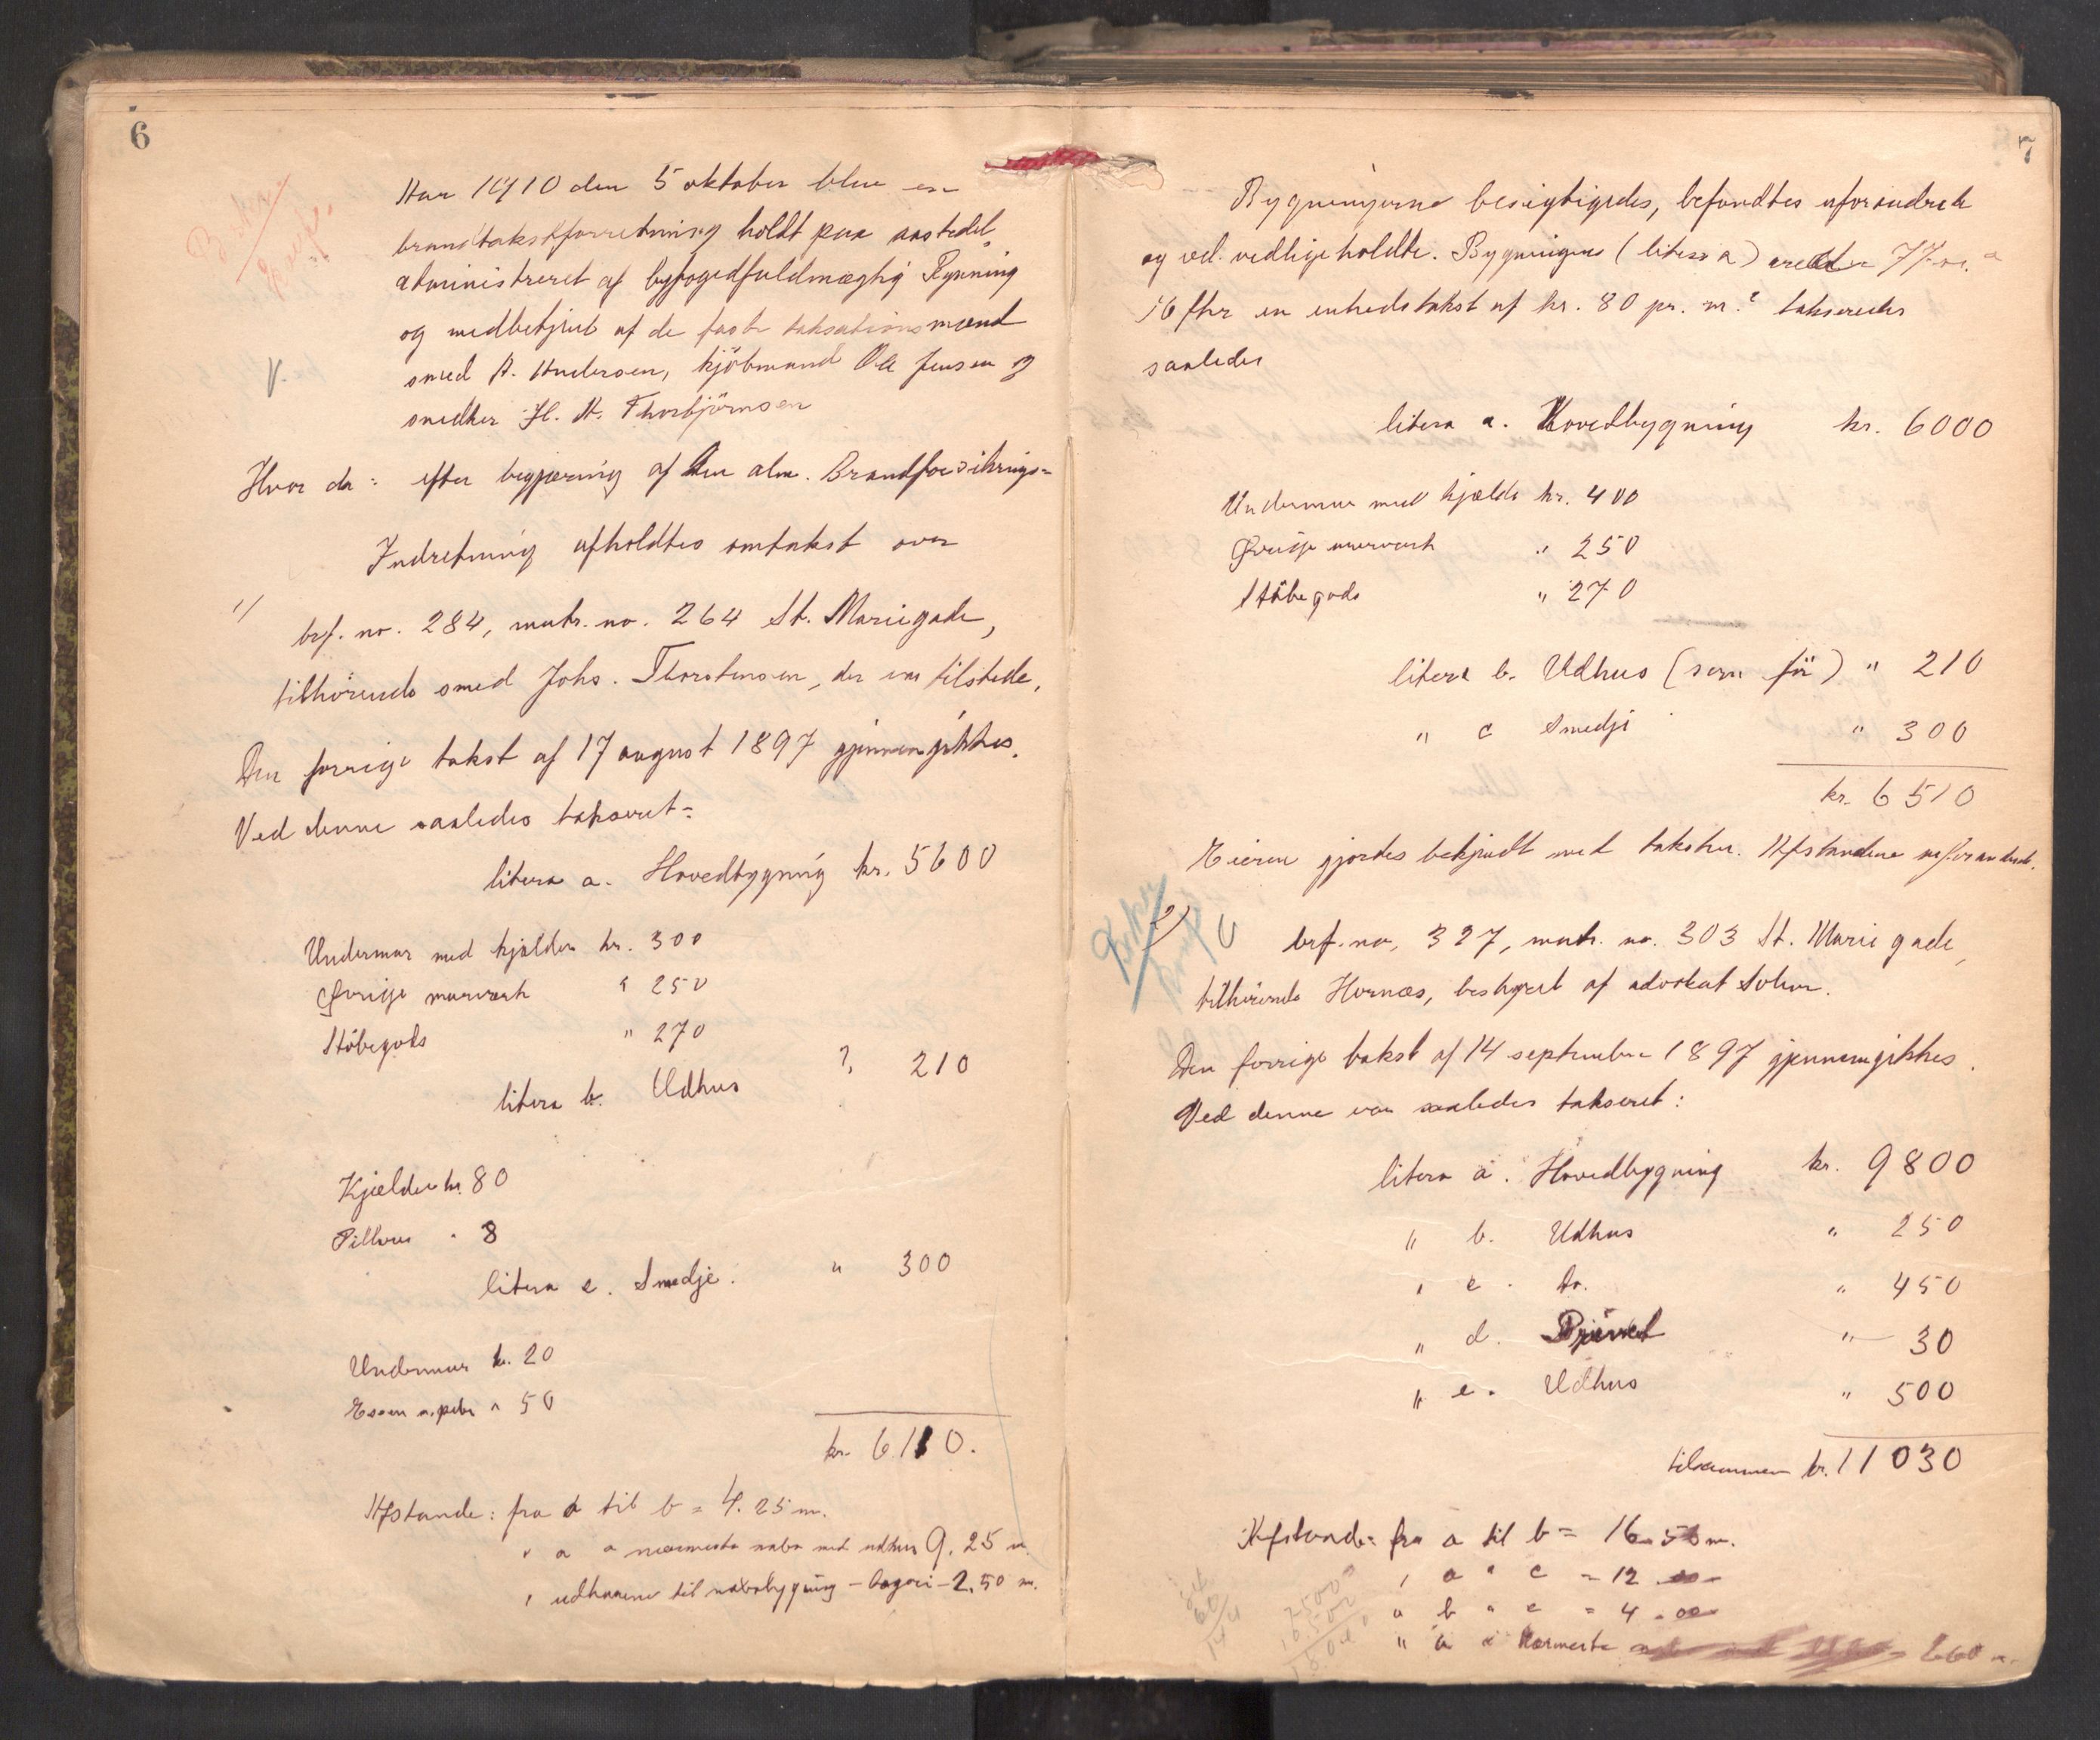 6
Aar 1910 den 5 oktober blev en
brandtakstforretning holdt paa aastedet
administreret af byfogedfuldmægtig Rynning
og medbetjent af de faste taksationsmænd
smed A. Andersen, kjöbmand Ole Jensen og
snedker H. A. Thorbjörnsen
V.
Hvor da: efter begjæring af Den alm. Brandforsikrings-
Indretning afholdtes omtakst over
1/
brf. no. 284, matr. no. 264 St. Mariegade,
tilhörende smed Johs. Thorstensen, der var tilstede.
Den forrige takst af 17 august 1897 gjennemgikkes.
Ved denne saaledes takseret:
litera a. Hovedbygning kr. 5600
Undermur med kjælder kr. 300
Övrige murværk " 250
Stöbegods " 270
litera b. Udhus " 210
Kjælder kr. 80
" 8
litera c. Smedje. " 300
Undermur kr. 20
Essen m. pibe " 50
kr. 6110.
Afstande: fra a til b = 4.25 m.
" a " nærmeste nabo med udhus 9.25 m.
" udhusene til nabobygning - - 2.50 m.
7
Bygningerne besigtigedes, befandtes uforandrede
og vel vedligeholdte. Bygningen (litera a)
efter en enhedstakst af kr. 80 pr. m.² takseredes
saaledes
litera a. Hovedbygning kr. 6000
Undermur med kjælder kr. 400
Övrige murværk " 250
Stöbegods " 270
litera b. Udhus (som för) " 210
" c Smedje " 300
kr. 6510
Eieren gjordes bekjendt med taksten. Afstandene uforandrede.
2)
brf. no. 327, matr. no. 303 St. Marie gade,
tilhörende Hornæs, bestyret af advokat
Den forrige takst af 14 september 1897 gjennemgikkes.
Ved denne var saaledes takseret:
litera a. Hovedbygning kr. 9800
" b. Udhus " 250
" c. do. " 450
" d. " 30
" e. Udhus " 500
tilsammen kr. 11030
Afstande: fra a til b = 16.50 m.
" a " c = 12.00 -
" b " c = 4.00 -
" a " nærmeste